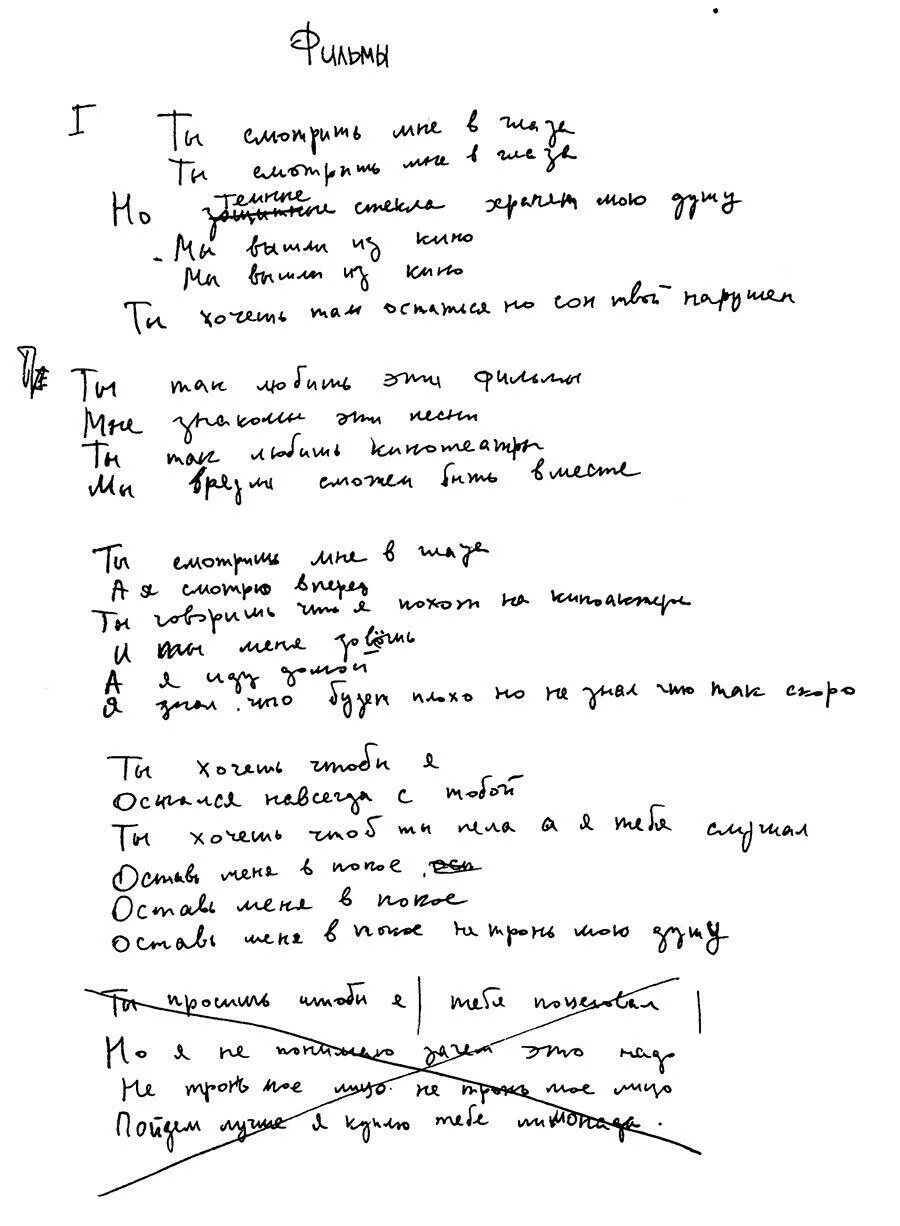 Фильмы
I
Ты смотришь мне в глаза
Ты смотришь мне в глаза
Но темные защитные стекла хранят мою душу
Мы вышли из кино
Мы вышли из кино
Ты хочешь там остаться но сон твой нарушен
Пр
Ты так любишь эти фильмы
Мне знакомы эти песни
Ты так любишь кинотеатры
Мы врядли сможем быть вместе
Ты смотришь мне в глаза
А я смотрю вперед
Ты говоришь что я похож на киноактера
И ты меня зовёшь
А я иду домой
Я знал что будет плохо но не знал что так скоро
Ты хочешь чтобы я
Остался навсегда с тобой
Ты хочешь чтоб ты пела а я тебя слушал
Оставь меня в покое, ост
Оставь меня в покое
Оставь меня в покое не тронь мою душу
Ты просишь чтобы я тебя поцеловал
Но я не понимаю зачем это надо
Не тронь мое лицо не тронь мое лицо
Пойдем лучше я куплю тебе лимонада.